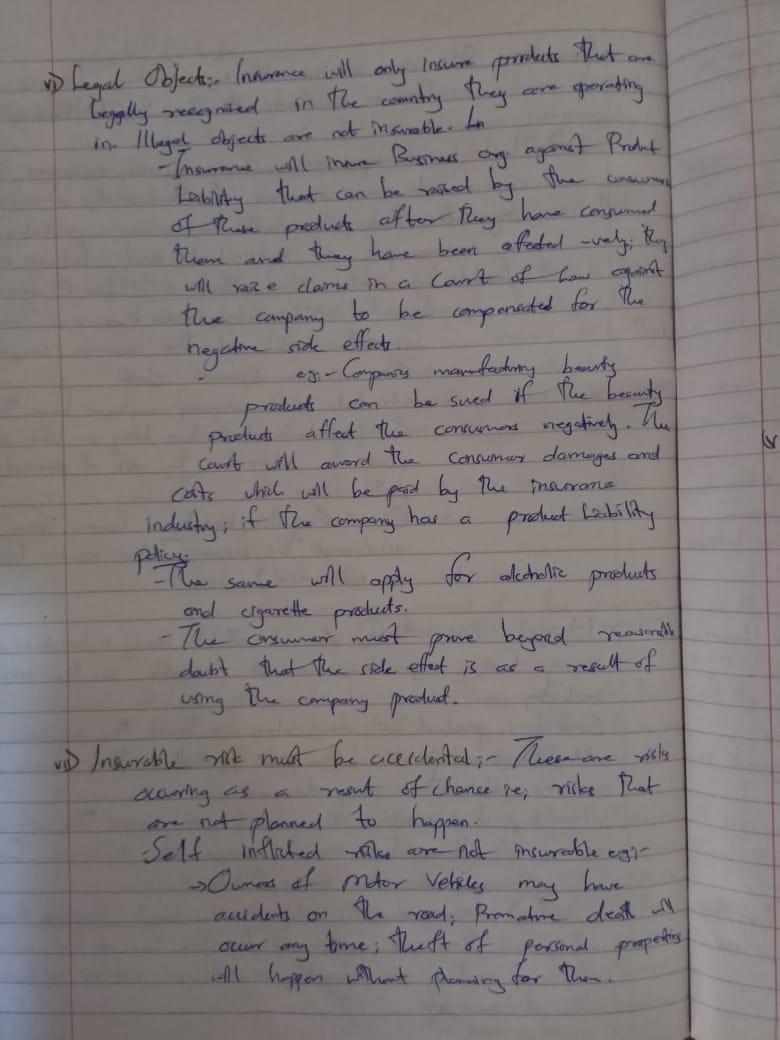 vi) Legal Objects:- Insurance will only insure products that are
legally recognised in the country they are operating
in. Illegal objects are not insurable. In
- Insurance will insure Business org. against Product
Liability that can be raised by the consumers
of these products after they have consumed
them and they have been affected -vely; they
will raize claims in a Court of Law against
the company to be compensated for the
negative side effects.
eg:- Companies manufacturing beauty
products can be sued if the beauty
products affect the consumers negatively. The
court will award the consumer damages and
costs which will be paid by the insurance
industry; if the company has a product Liability
policy.
- The same will apply for alcoholic products
and cigarette products.
- The consumer must prove beyond reasonable
doubt that the side effect is as a result of
using the company product.
vii) Insurable risk must be accidental:- These are risks
occuring as a result of chance ie; risks that
are not planned to happen.
- Self inflicted risks are not insurable eg:-
→ Owners of motor Vehicles may have
accidents on the road; Premature death will
occur any time; theft of personal properties
will happen without planning for them.